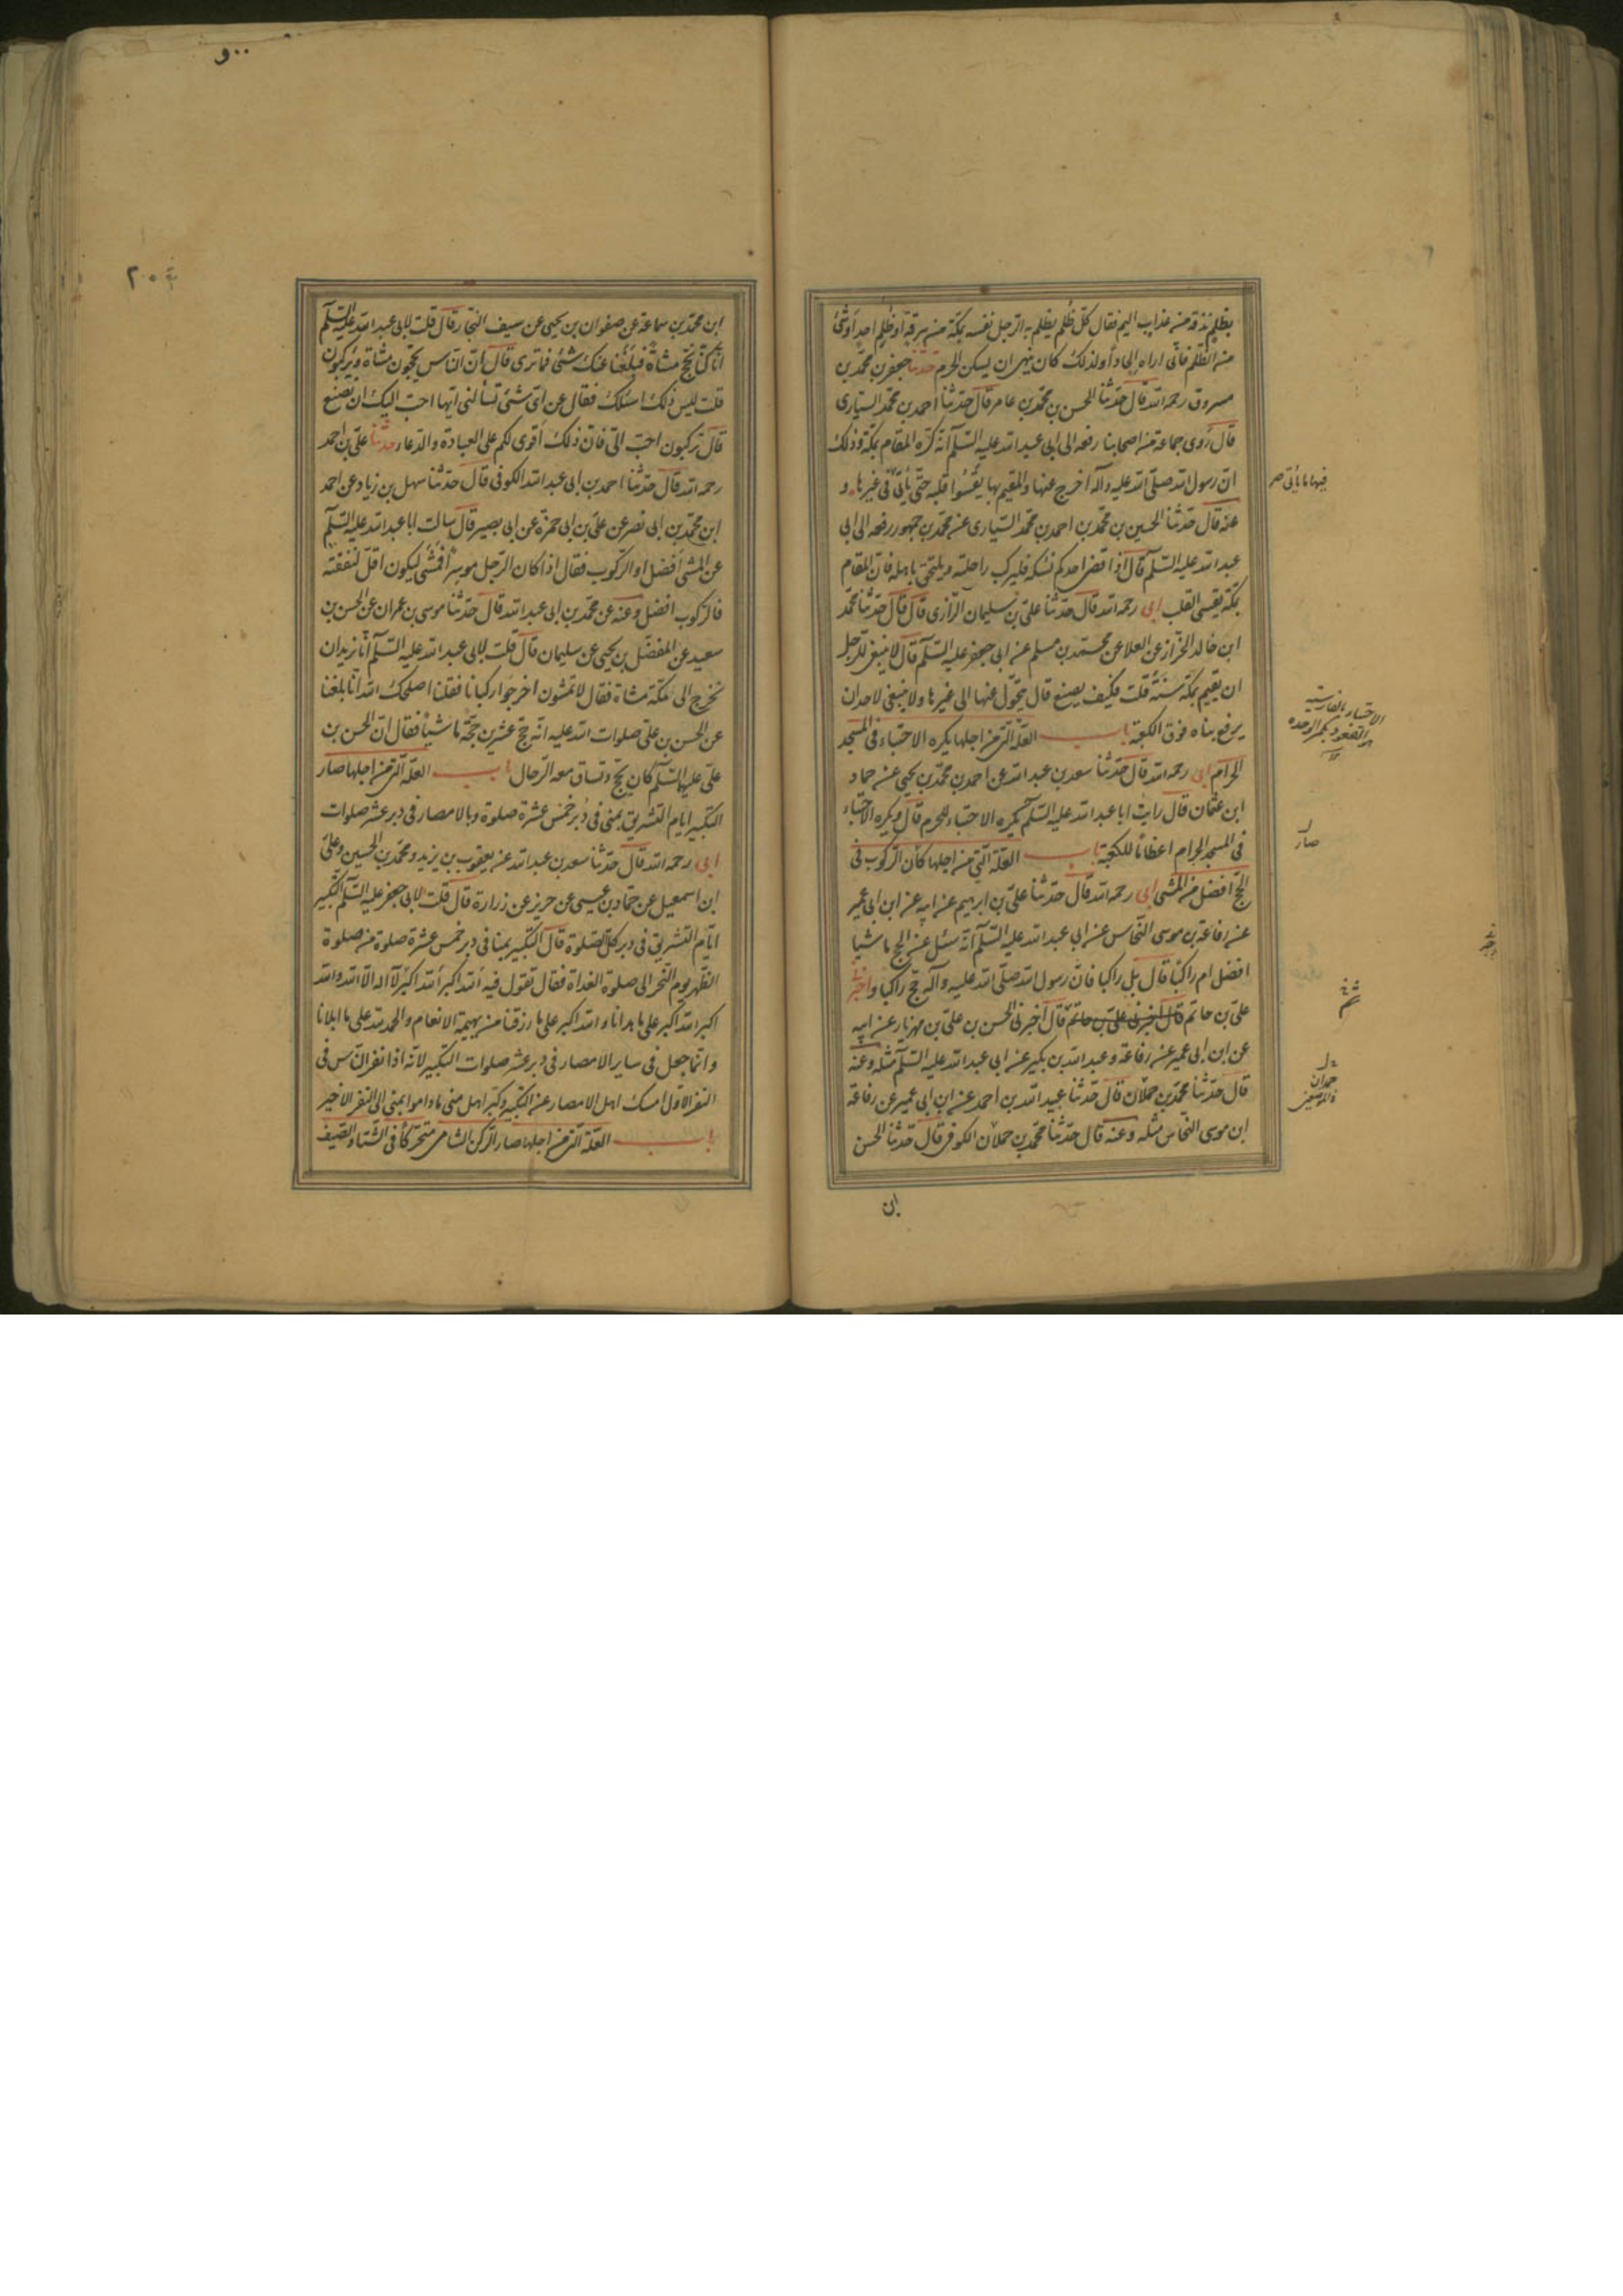 بظلم نذقه من عذاب اليم فقال كل ظلم يظلم به الرجل نفسه بمكة من سرقة او ظلم احد او شئ
من الظلم فانى اراه الحادا ولذلك كان ينهى ان يسكن الحرم حدثنا جعفر بن محمد بن
مسروق رحمه الله قال حدثنا الحسن بن محمد بن عامر قال حدثنا احمد بن محمد السيارى
قال روى جماعة من اصحابنا رفعه الى ابى عبد الله عليه السلام انه كره المقام بمكة وذلك
ان رسول الله صلى الله عليه وآله أخرج عنها والمقيم بها يقسوا قلبه حتى يأتى فى غيرها و
عنه قال حدثنا الحسين بن محمد بن احمد بن محمد السيارى عن محمد بن جمهور رفعه الى ابى
عبد الله عليه السلام قال اذا قضى احدكم نسكه فليركب راحلته ويلتحق باهله فان المقام
بمكة يقسى القلب ابى رحمه الله قال حدثنا على بن سليمان الرازى قال قال حدثنا محمد
ابن خالد الخزاز عن العلا عن محمد بن مسلم عن ابى جعفر عليه السلام قال لا ينبغى للرجل
ان يقيم بمكة سنة قلت فكيف يصنع قال يتحول عنها الى غيرها ولا ينبغى لاحد ان
يرفع بناه فوق الكعبة باب العلة التى من اجلها يكره الاحتباء فى المسجد
الحرام ابى رحمه الله قال حدثنا سعد بن عبد الله عن احمد بن محمد بن يحيى عن حماد
ابن عثمان قال رايت ابا عبد الله عليه السلام يكره الاحتباء للحرم قال ويكره الاحتباء
فى المسجد الحرام اعظاما للكعبة باب العلة التى من اجلها كان الركوب فى
الحج افضل من المشى ابى رحمه الله قال حدثنا على بن ابرهيم عن ابيه عن ابن ابى عمير
عن رفاعة بن موسى النحاس عن ابى عبد الله عليه السلام انه سئل عن الحج ماشيا
افضل ام راكبا قال بل راكبا فان رسول الله صلى الله عليه وآله حج راكبا واخبرنا
على بن حاتم قال اخبرنى على بن حاتم قال اخبرنى الحسن بن على بن مهزيار عن ابيه
عن ابن ابى عمير عن رفاعة وعبد الله بن بكير عن ابى عبد الله عليه السلام مثله وعنه
قال حدثنا محمد بن حملان قال حدثنا عبيد الله بن احمد عن ابن ابى عمير عن رفاعة
ابن موسى النحاس مثله وعنه قال حدثنا محمد بن حملان الكوفى قال حدثنا الحسن
ابن
فيها ما يأتى صر
الاحتباء بالفارسية
صار
حمدان
٢٠٥
ابن محمد بن سماعة عن صفوان بن يحيى عن سيف التجار قال قلت لابى عبد الله عليه السلم
انا كنا نحج مشاة فبلغنا عنك شئ فما ترى قال ان الناس يحجون مشاة ويركبون
قلت ليس ذلك اسئلك فقال عن اى شئ تسألنى ايها احب اليك ان نصنع
قال تركبون احب الى فان ذلك أقوى لكم على العبادة والدعاء حدثنا على بن احمد
رحمه الله قال حدثنا احمد بن ابى عبد الله الكوفى قال حدثنا سهل بن زياد عن احمد
ابن محمد بن ابى نصر عن على بن ابى حمزة عن ابى بصير قال سالت ابا عبد الله عليه السلم
عن المشى أفضل او الركوب فقال اذا كان الرجل موسرا فمشى ليكون اقل لنفقته
فالركوب افضل وعنه عن محمد بن ابى عبد الله قال حدثنا موسى بن عمران عن الحسن بن
سعيد عن المفضل بن يحيى عن سليمان قال قلت لابى عبد الله عليه السلم انا نريد ان
نخرج الى مكة مشاة فقال لا تمشون اخرجوا ركبانا فقلنا اصلحك الله انا بلغنا
عن الحسن بن على صلوات الله عليه انه حج عشرين حجة ماشيا فقال ان الحسن بن
على عليهما السلم كان يحج وتساق معه الرحال باب العلة التى من اجلها صار
التكبير ايام التشريق بمنى فى دبر خمس عشرة صلوة وبالامصار فى دبر عشر صلوات
ابى رحمه الله قال حدثنا سعد بن عبد الله عن يعقوب بن يزيد ومحمد بن الحسين وعلى
ابن اسمعيل عن حماد بن عيسى عن حريز عن زرارة قال قلت لابى جعفر عليه السلم التكبير
ايام التشريق فى دبر كل الصلوة قال التكبير بمنا فى دبر خمس عشرة صلوة من صلوة
الظهر يوم النحر الى صلوة الغداة فقال تقول فيه الله اكبر الله اكبر لا اله الا الله والله
اكبر الله اكبر على ما هدانا والله اكبر على ما رزقنا من بهيمة الانعام والحمد لله على ما ابلانا
وانما جعل فى ساير الامصار فى دبر عشر صلوات التكبير لانه اذا نفر الناس فى
النفر الاول امسك اهل الامصار عن التكبير وكبر اهل منى ماداموا بمنى الى النفر الاخير
باب العلة التى من اجلها صار الركن الشامى متحركا فى الشتاء والصيف